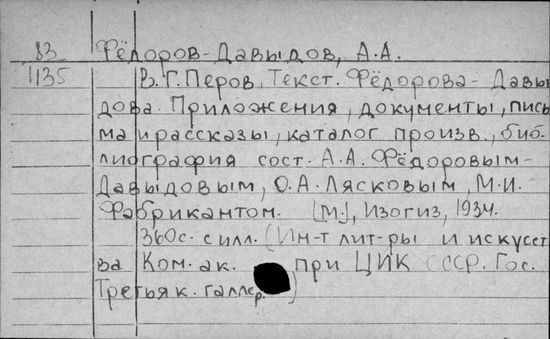 83 Фёдоров-Давыдов, А.А.
1135 В.Г. Перов. Текст. Фёдорова-Давы
дова. Приложения, документы, пись
ма и рассказы, каталог произв., биб-
лиография сост. А.А. Фёдоровым-
Давыдовым, О.А. Лясковым, М.И.
Фабрикантом. [М.], Изогиз, 1934.
360с. с илл. (Ин-т лит-ры и искусст
ва Ком. ак. при ЦИК СССР. Гос.
Третьяк. галлер.)